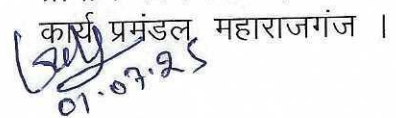 कार्य प्रमंडल, महाराजगंज ।
01.07.25